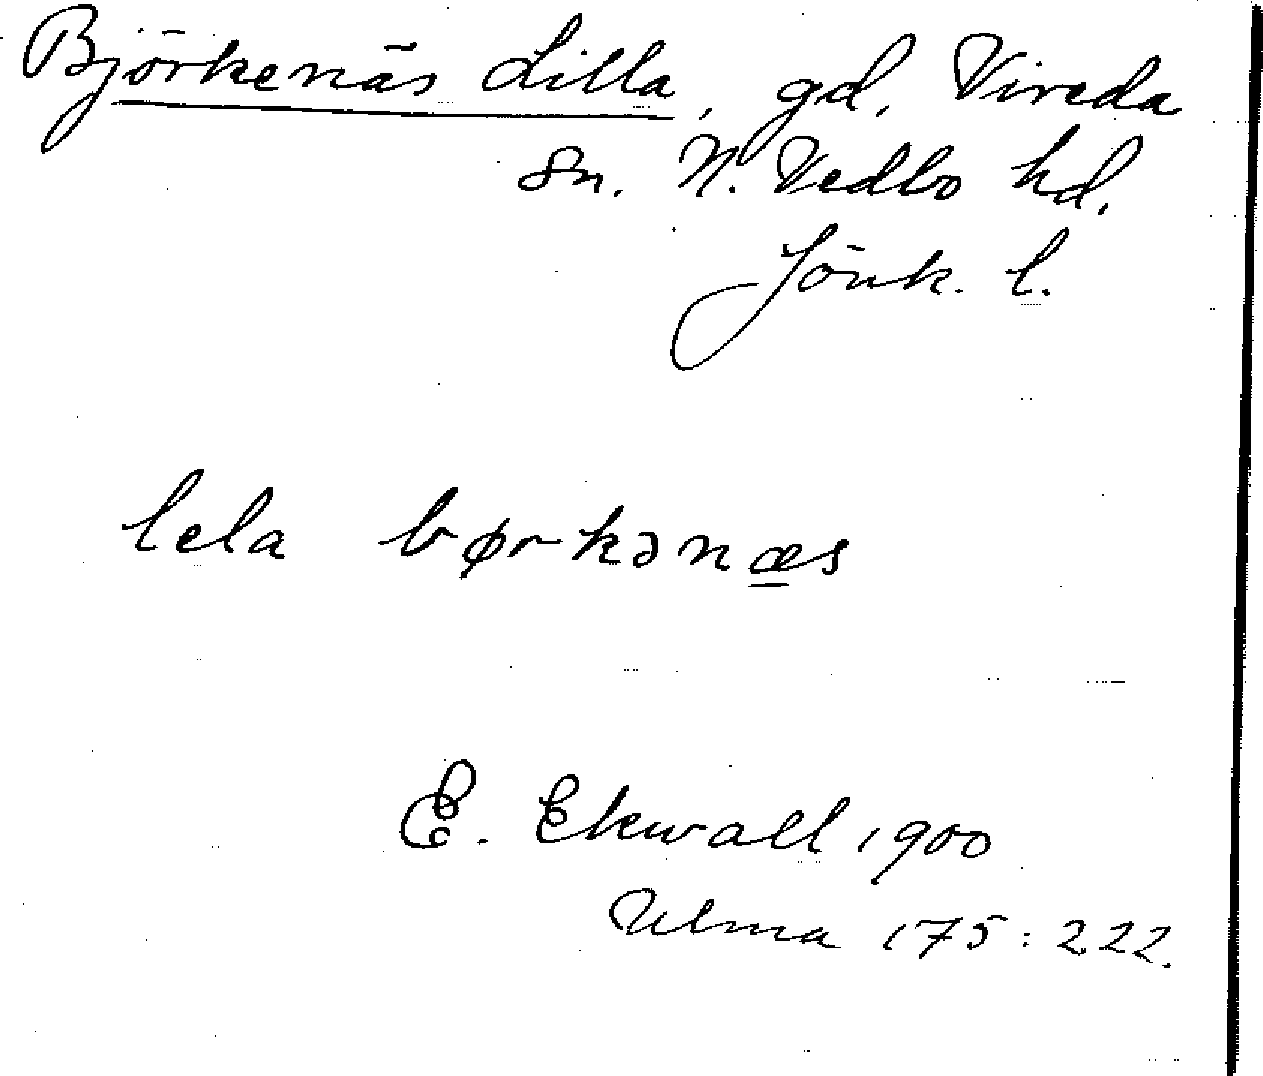 Björkenäs Lilla, gd, Vireda
sn. N. Vedbo hd.
Jönk. l.
lela børkənæs
E. Ekwall 1900
Ulma 175:222.